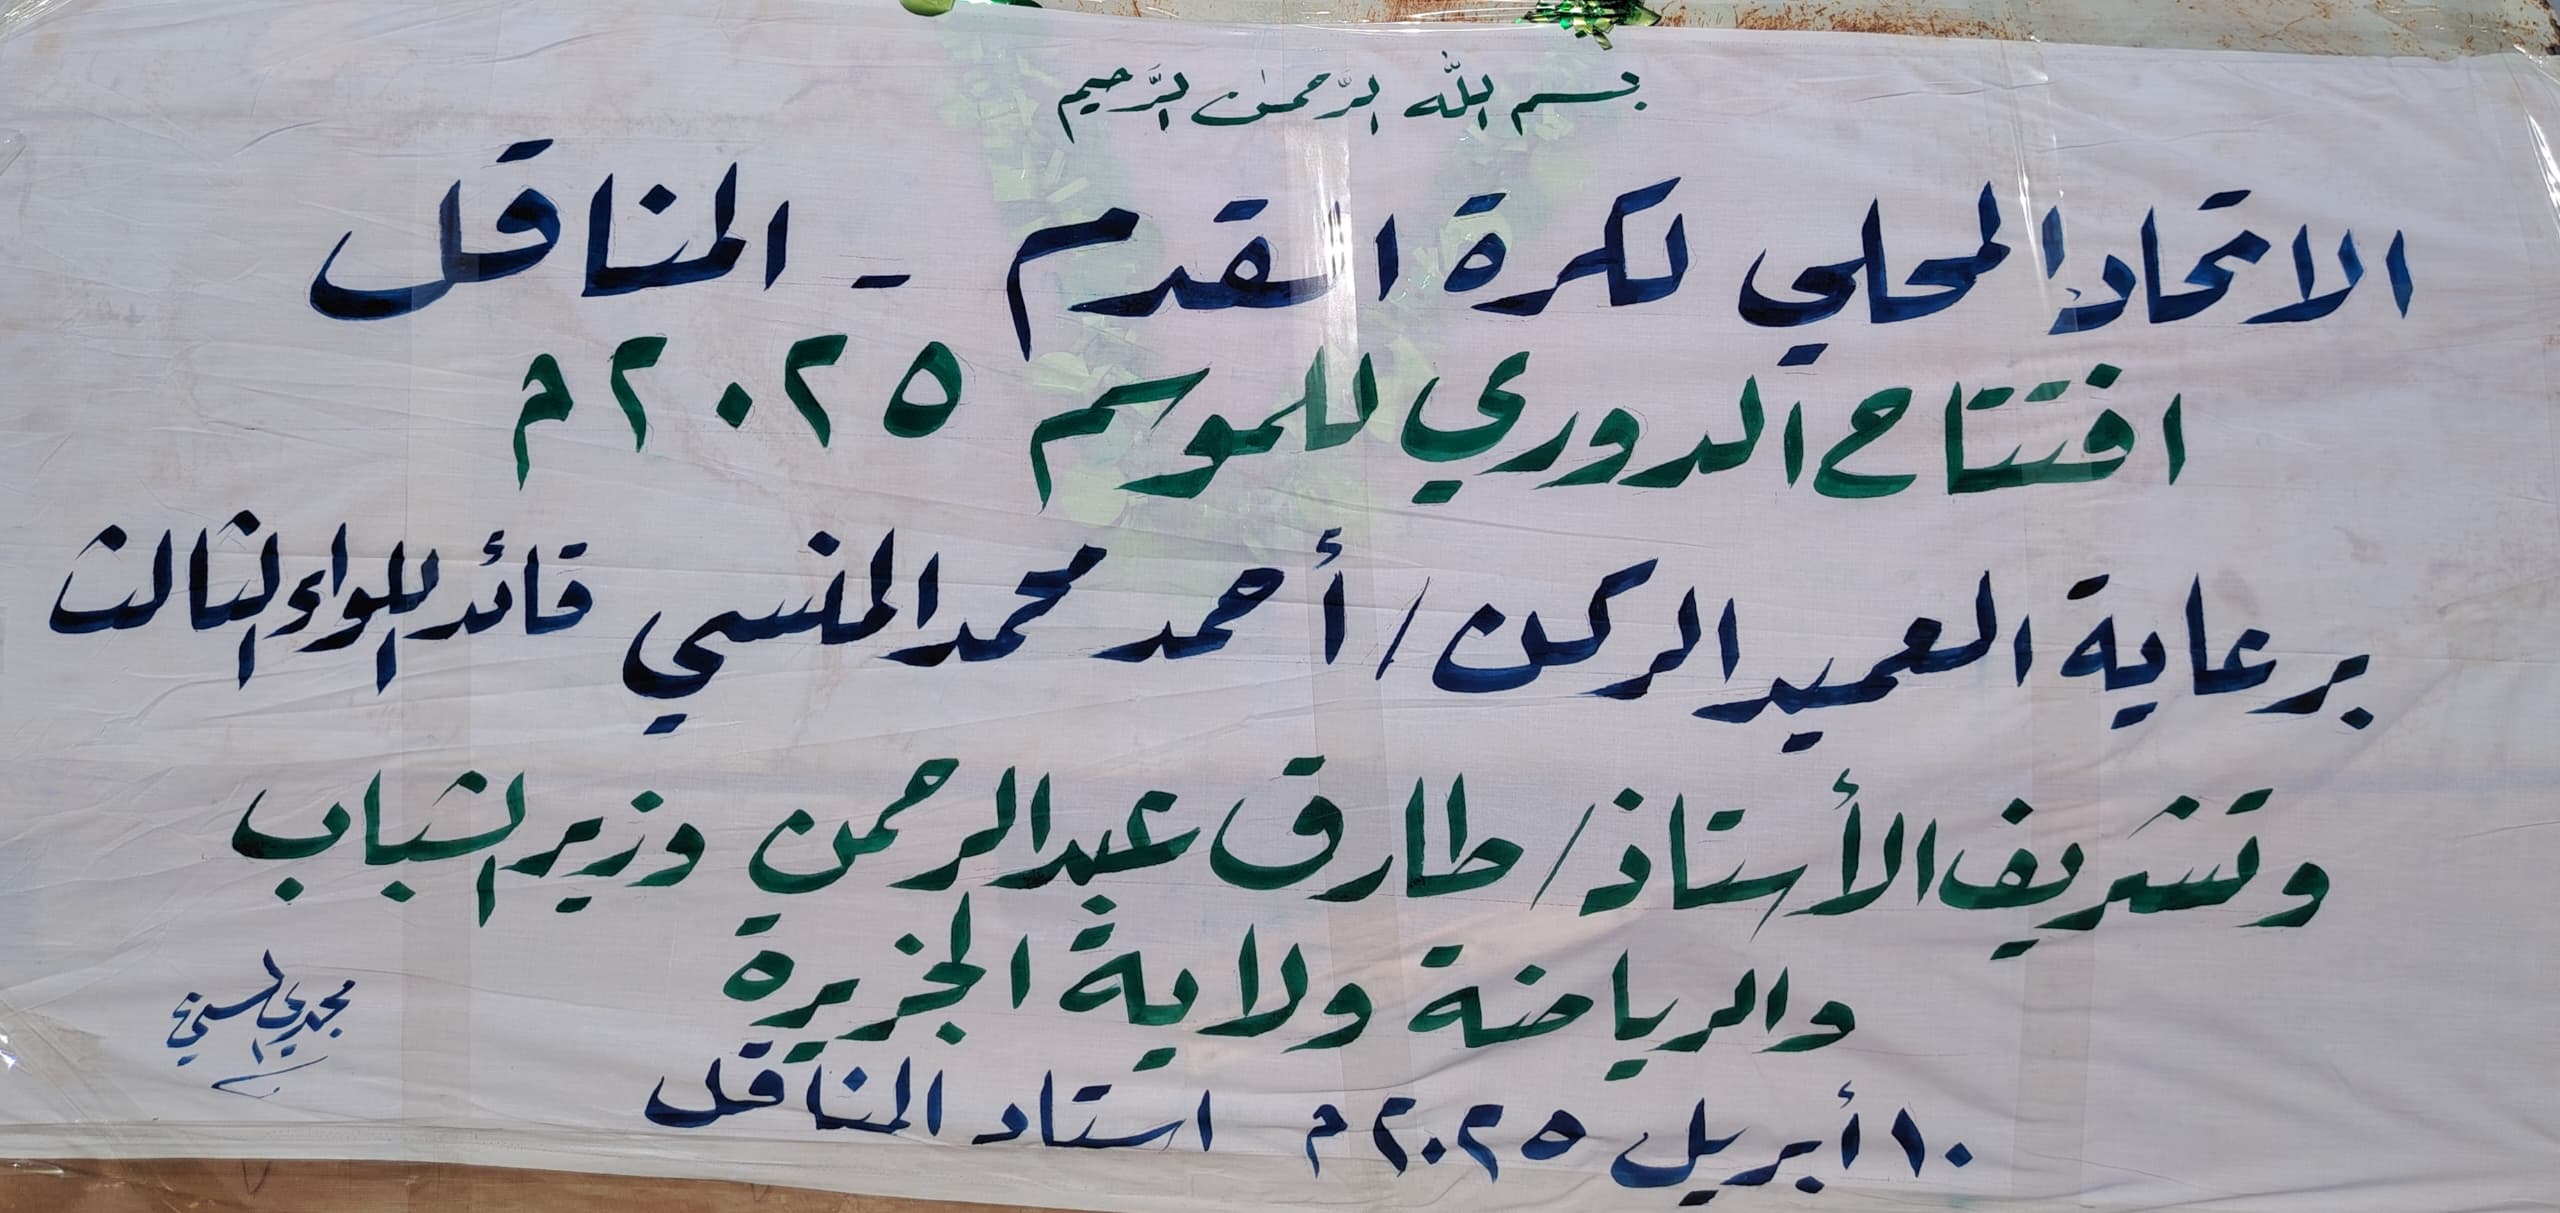 بسم الله الرَّحمٰن الرَّحيم
الاتحاد المحلي لكرة القدم - المناقل
افتتاح الدوري للموسم ٢٠٢٥م
برعاية العميد الركن / أحمد محمد المنسي قائد اللواء الثالث
وتشريف الأستاذ / طارق عبدالرحمن وزير الشباب
والرياضة ولاية الجزيرة
١٠ أبريل ٢٠٢٥م استاد المناقل
مجدي